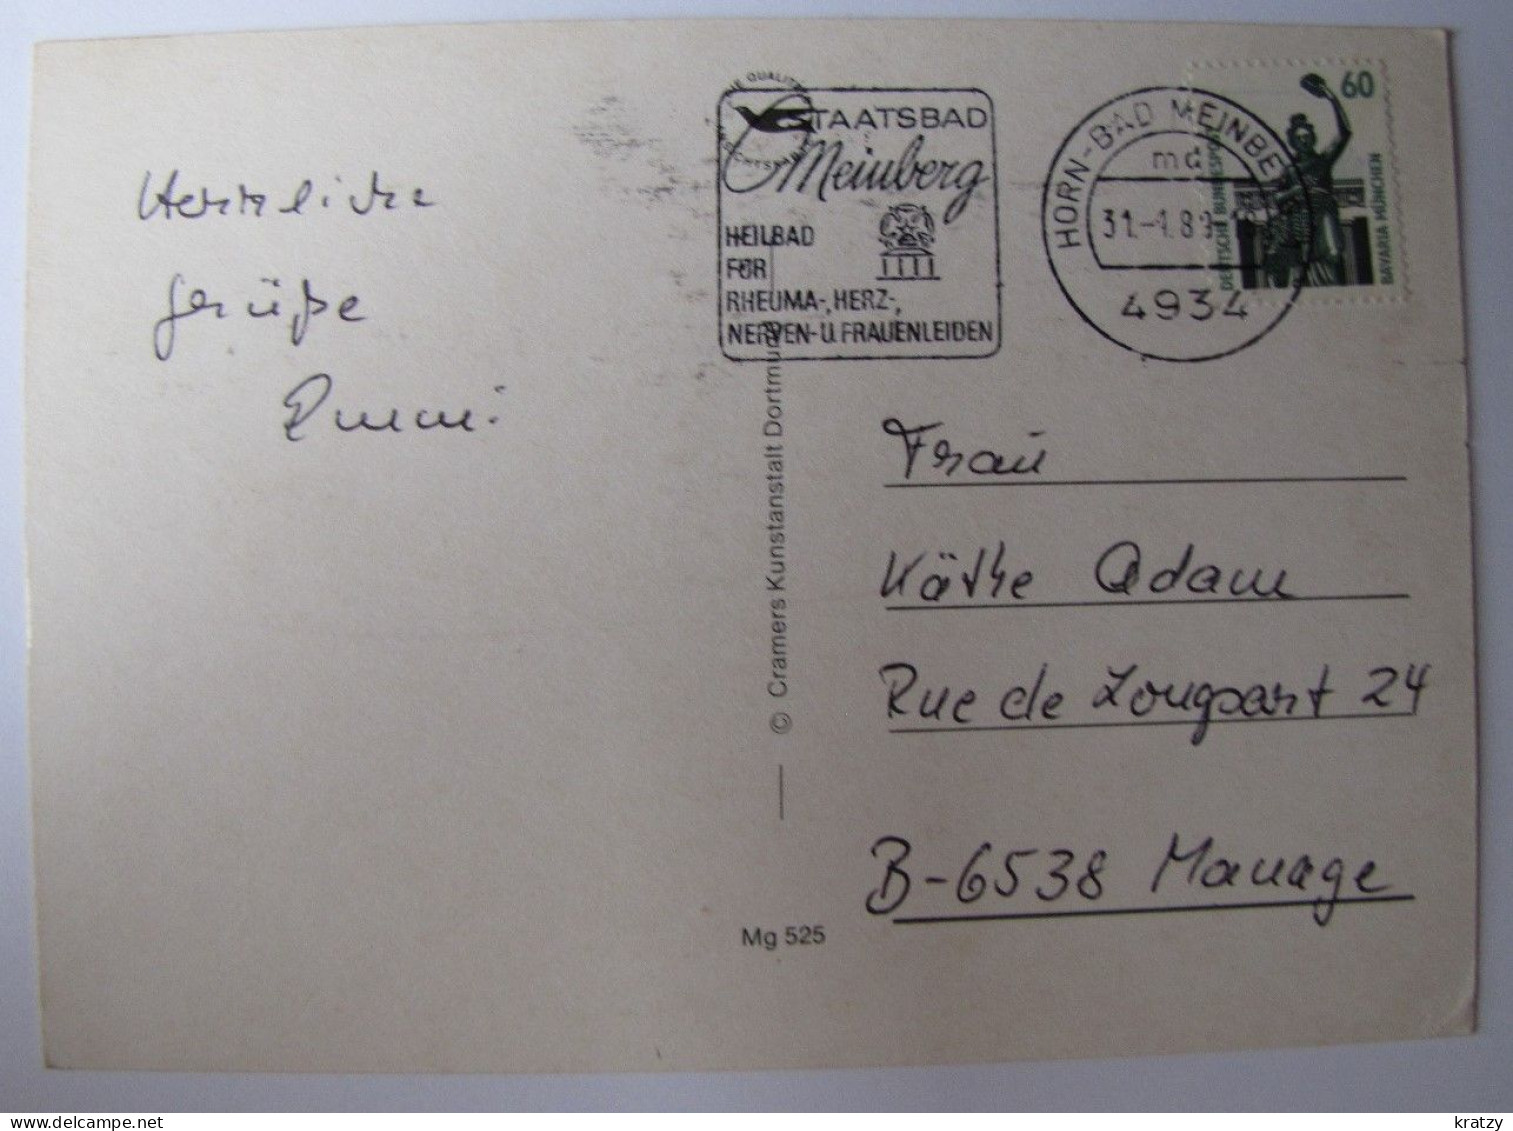 Herzliche
Grüße
Emmi
DIE QUALITÄ
STAATSBAD
Meinberg
HEILBAD
FÜR
RHEUMA-, HERZ-,
NERVEN- U. FRAUENLEIDEN
HORN-BAD MEINBE
md
31.-1.89-
4934
60
DEUTSCHE BUNDESPOST
BAVARIA MÜNCHEN
© Cramers Kunstanstalt Dortmund
Frau
Käthe Adam
Rue de Longsart 24
B-6538 Manage
Mg 525
kratzy